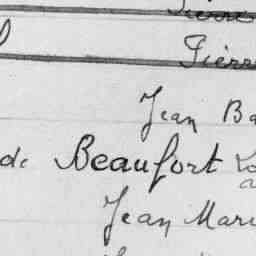 Pierre
Pierre
Jean Ba
de Beaufort
Jean Mari